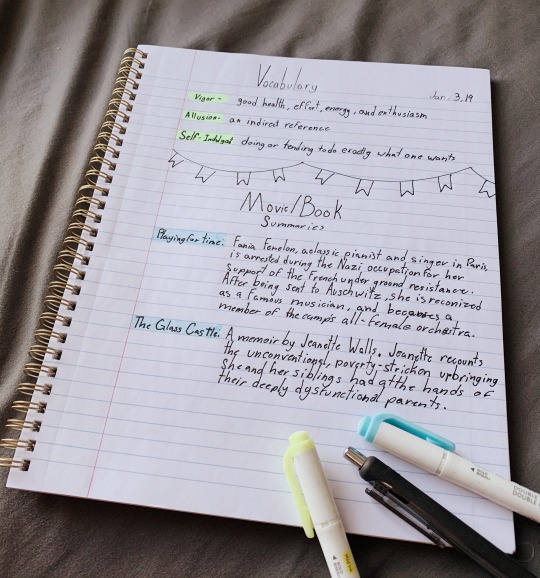 Vocabulary
Jan. 3, 19
Vigor - good health, effort, energy, and enthusiasm
Allusion- an indirect reference
Self-Indulgent doing or tending to do exactly what one wants
Movie/Book
Summaries
Playing for time. Fania Fenelon, a classic pianist and singer in Paris,
is arrested during the Nazi occupation for her
support of the French underground resistance.
After being sent to Auschwitz, she is reconized
as a famous musician, and becomes a
member of the camps all-female orchestra.
The Glass Castle. A memoir by Jeanette Walls, Jeanette recounts
the unconventional, poverty-stricken upbringing
she and her siblings had at the hands of
their deeply dysfunctional parents.
DOUBLE
DOUBLE